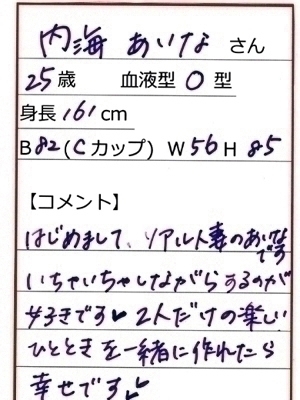 内海 あいな さん
25歳 血液型 O 型
身長 161 cm
B 82 (C カップ) W 56 H 85
【コメント】
はじめまして、リアル人妻のあいな
です
いちゃいちゃしながらするのが
好きです✔ 2人だけの楽しい
ひとときを一緒に作れたら
幸せです✔